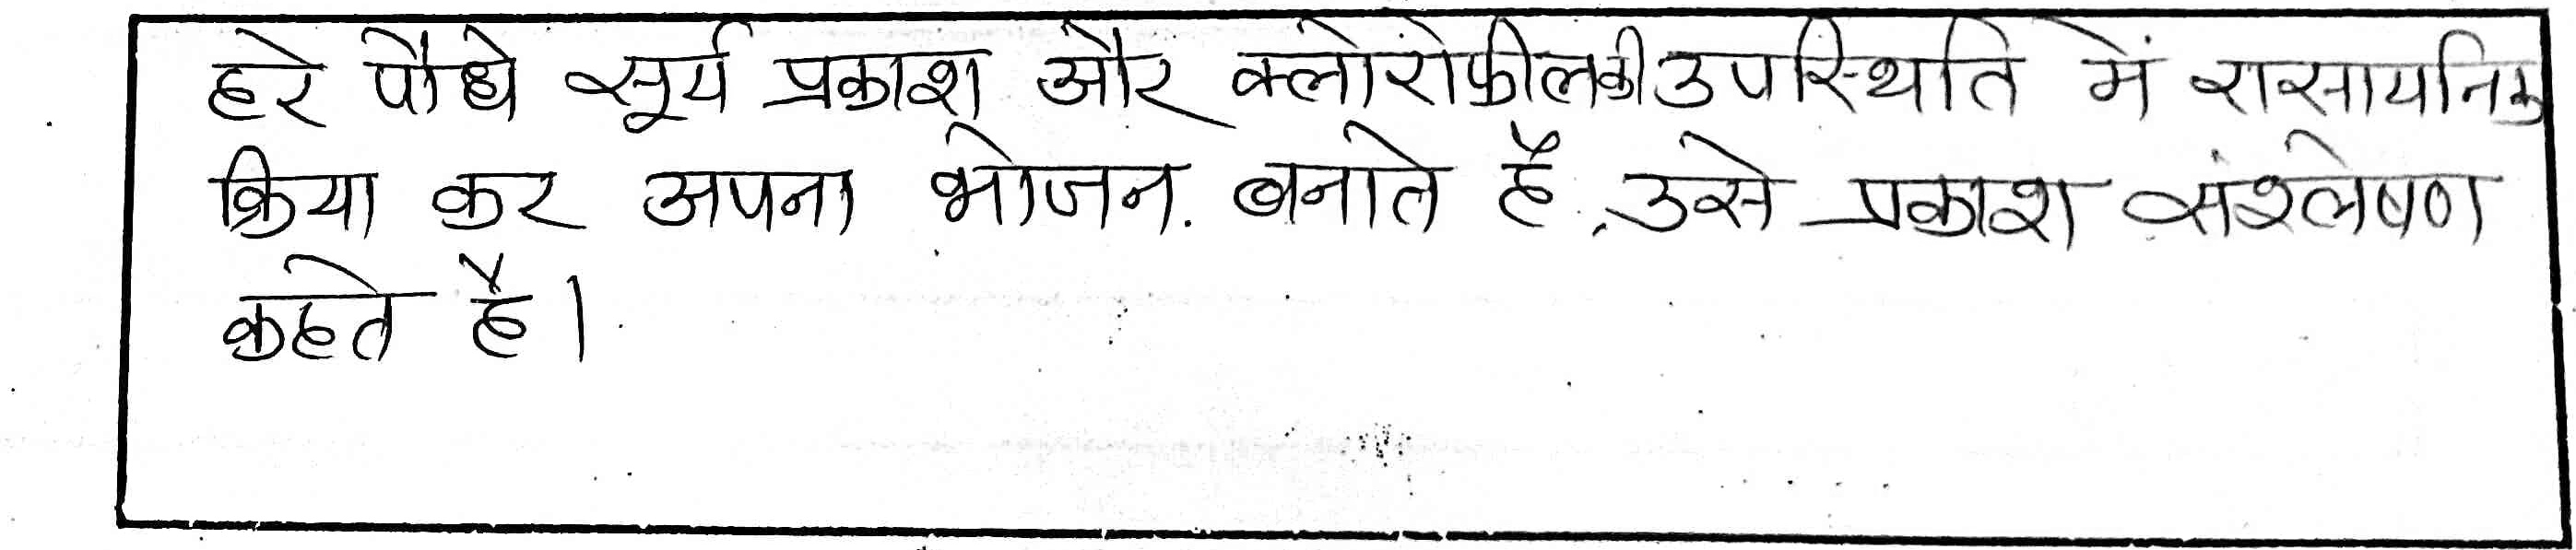 हरे पौधे सूर्य प्रकाश और क्लोरोफीलकी उपस्थिति में रासायनिक
क्रिया कर अपना भोजन बनाते है, उसे प्रकाश संश्लेषण
कहते है।